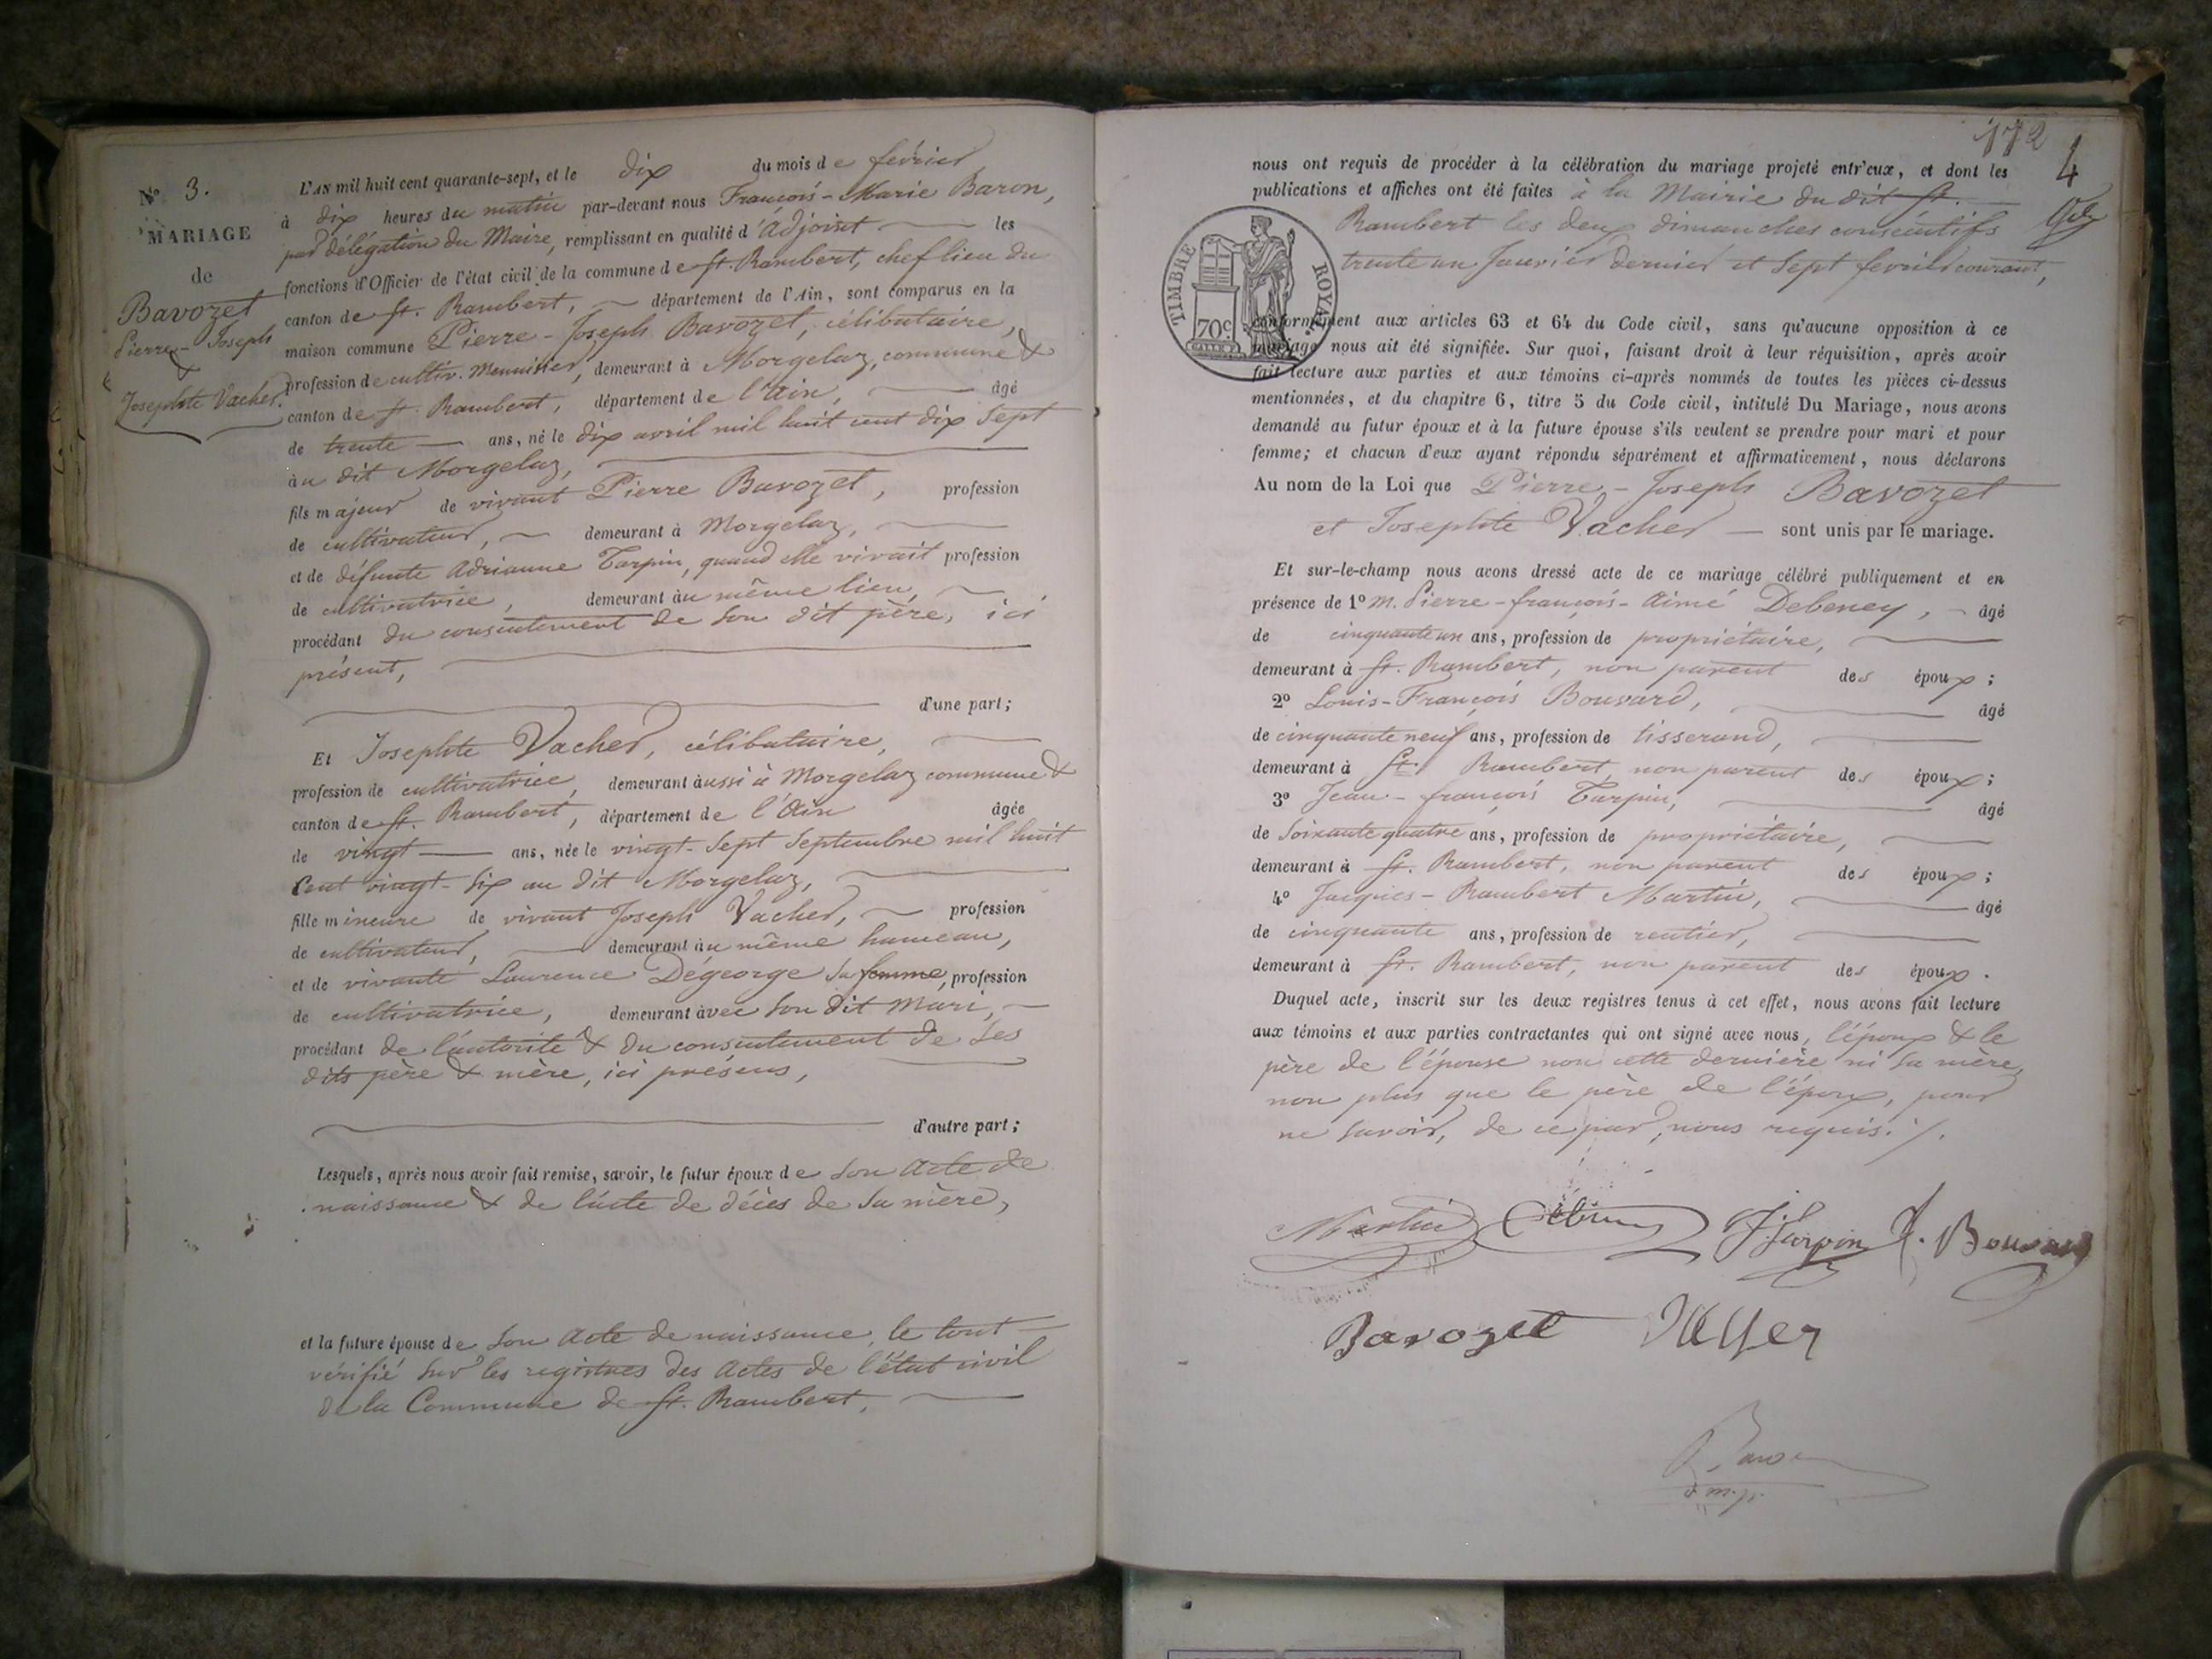 N.o 3.
MARIAGE
de
Bavozet
Pierre-Joseph
&
Josephte Vacher.
L'AN mil huit cent quarante-sept, et le dix du mois de février
à dix heures du matin par-devant nous François-Marie Baron,
par délégation du Maire, remplissant en qualité d'Adjoint les
fonctions d'Officier de l'état civil de la commune de St. Rambert, chef lieu du
canton de St. Rambert, département de l'Ain, sont comparus en la
maison commune Pierre-Joseph Bavozet, célibataire,
profession de cultiv. Menuisier, demeurant à Morgelaz, commune &
canton de St. Rambert, département de l'Ain, âgé
de trente ans, né le dix avril mil huit cent dix sept
au dit Morgelaz,
fils majeur de vivant Pierre Bavozet, profession
de cultivateur, demeurant à Morgelaz,
et de défunte Adrianne Tarpin, quand elle vivait profession
de cultivatrice, demeurant au même lieu,
procédant du consentement de son dit père, ici
présent,
d'une part;
Et Josephte Vacher, célibataire,
profession de cultivatrice, demeurant aussi à Morgelaz commune &
canton de St. Rambert, département de l'Ain âgée
de vingt ans, née le vingt-sept Septembre mil huit
Cent vingt-six au dit Morgelaz,
fille mineure de vivant Joseph Vacher, profession
de cultivateur, demeurant au même hameau,
et de vivante Laurence Dégeorge sa femme, profession
de cultivatrice, demeurant avec son dit mari,
procédant de l'autorité & du consentement de ses
dits père & mère, ici présens,
d'autre part;
Lesquels, après nous avoir fait remise, savoir, le futur époux de son acte de
naissance & de l'acte de décès de sa mère,
et la future épouse de son acte de naissance, le tout
vérifié sur les registres des actes de l'état civil
de la Commune de St. Rambert,
172
4
nous ont requis de procéder à la célébration du mariage projeté entr'eux, et dont les
publications et affiches ont été faites à la Mairie du dit St.
Rambert les deux dimanches consécutifs
trente un Janvier dernier et sept février courant,
TIMBRE ROYAL
70c
conformément aux articles 63 et 64 du Code civil, sans qu'aucune opposition à ce
mariage nous ait été signifiée. Sur quoi, faisant droit à leur réquisition, après avoir
fait lecture aux parties et aux témoins ci-après nommés de toutes les pièces ci-dessus
mentionnées, et du chapitre 6, titre 5 du Code civil, intitulé Du Mariage, nous avons
demandé au futur époux et à la future épouse s'ils veulent se prendre pour mari et pour
femme; et chacun d'eux ayant répondu séparément et affirmativement, nous déclarons
Au nom de la Loi que Pierre-Joseph Bavozet
et Josephte Vacher sont unis par le mariage.
Et sur-le-champ nous avons dressé acte de ce mariage célébré publiquement et en
présence de 1º M. Pierre-françois-Aimé Debeney, âgé
de cinquante un ans, profession de propriétaire,
demeurant à St. Rambert, non parent des époux;
2º Louis-François Bouvard, âgé
de cinquante neuf ans, profession de tisserand,
demeurant à St. Rambert, non parent des époux;
3º Jean-françois Tarpin, âgé
de soixante quatre ans, profession de propriétaire,
demeurant à St. Rambert, non parent des époux;
4º Jacques-Rambert Martin, âgé
de cinquante ans, profession de rentier,
demeurant à St. Rambert, non parent des époux.
Duquel acte, inscrit sur les deux registres tenus à cet effet, nous avons fait lecture
aux témoins et aux parties contractantes qui ont signé avec nous, l'époux & le
père de l'épouse non cette dernière ni sa mère,
non plus que le père de l'époux, pour
ne savoir, de ce par nous requis. /.
Martin Debeney J f Tarpin f. Bouvard
Bavozet Vacher
Baron